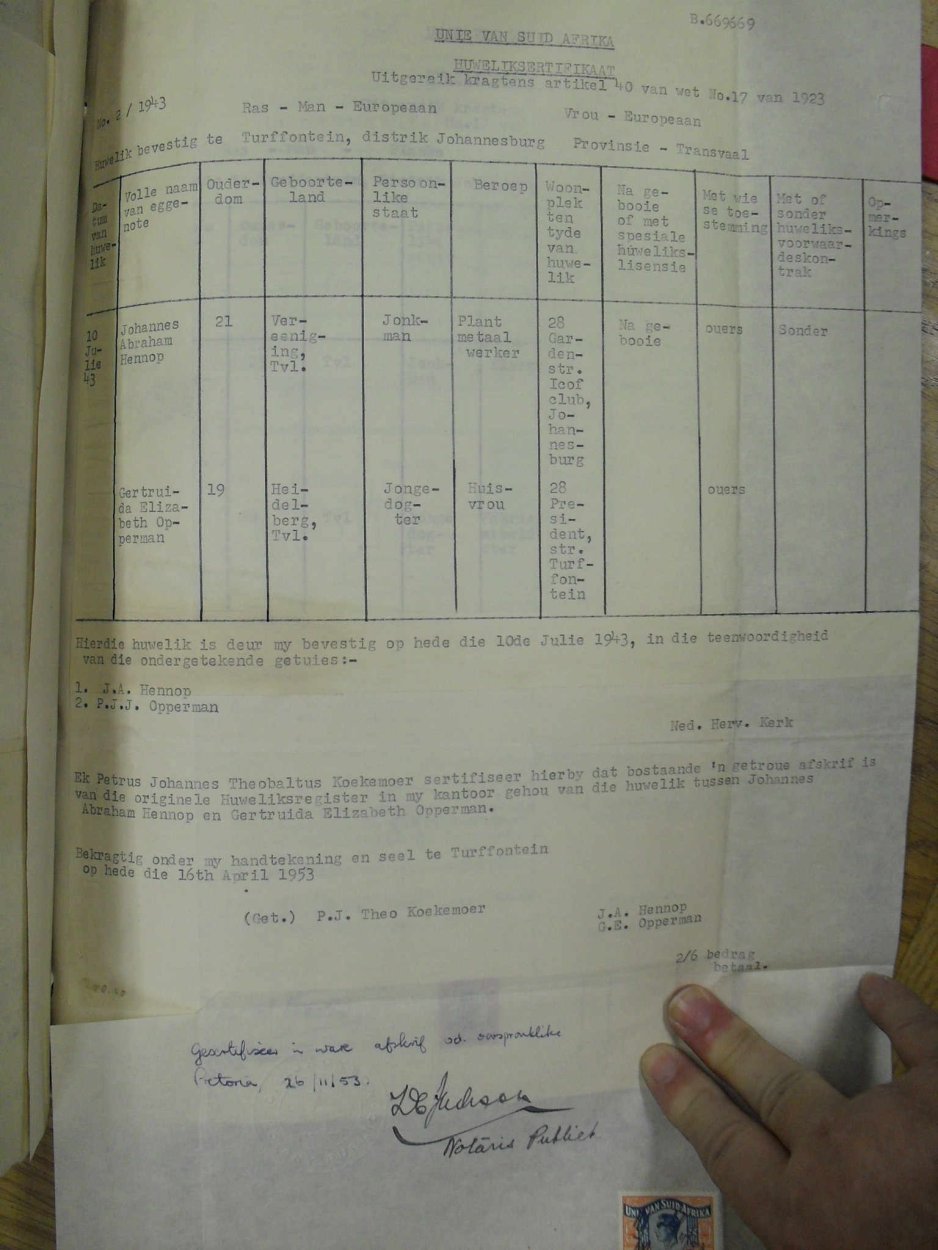 B.669669
UNIE VAN SUID AFRIKA
HUWELIKSERTIFIKAAT
Uitgereik kragtens artikel 40 van wet No.17 van 1923
No. 2 / 1943 Ras - Man - Europeaan Vrou - Europeaan
Huwelik bevestig te Turffontein, distrik Johannesburg Provinsie - Transvaal
Da-
tum
van
huwe-
lik
Volle naam
van egge-
note
Ouder-
dom
Geboorte-
land
Persoon-
like
staat
Beroep
Woon-
plek
ten
tyde
van
huwe-
lik
Na ge-
booie
of met
spesiale
huweliks-
lisensie
Met wie
se toe-
stemming
Met of
sonder
huweliks-
voorwaar-
deskon-
trak
Op-
mer-
kings
10
Ju-
lie
43
Johannes
Abraham
Hennop
21
Ver-
eenig-
ing,
Tvl.
Jonk-
man
Plant
metaal
werker
28
Gar-
den-
str.
Icof
club,
Jo-
han-
nes-
burg
Na ge-
booie
ouers
Sonder
Gertrui-
da Eliza-
beth Op-
perman
19
Hei-
del-
berg,
Tvl.
Jonge-
dog-
ter
Huis-
vrou
28
Pre-
si-
dent,
str.
Turf-
fon-
tein
ouers
Hierdie huwelik is deur my bevestig op hede die 10de Julie 1943, in die teenwoordigheid
van die ondergetekende getuies:-
1. J.A. Hennop
2. P.J.J. Opperman
Ned. Herv. Kerk
Ek Petrus Johannes Theobaltus Koekemoer sertifiseer hierby dat bostaande 'n getroue afskrif is
van die originele Huweliksregister in my kantoor gehou van die huwelik tussen Johannes
Abraham Hennop en Gertruida Elizabeth Opperman.
Bekragtig onder my handtekening en seel te Turffontein
op hede die 16th April 1953
(Get.) P.J. Theo Koekemoer
J.A. Hennop
G.E. Opperman
2/6 bedrag
betaal.
afskrif
Pretoria, 26/11/53.
Notaris Publiek
UNIE VAN SUID AFRIKA